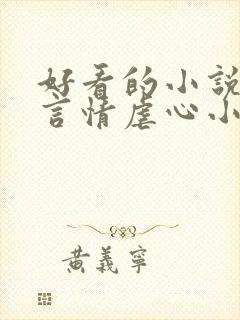 好看的小說
言情虐心小
黃義寧